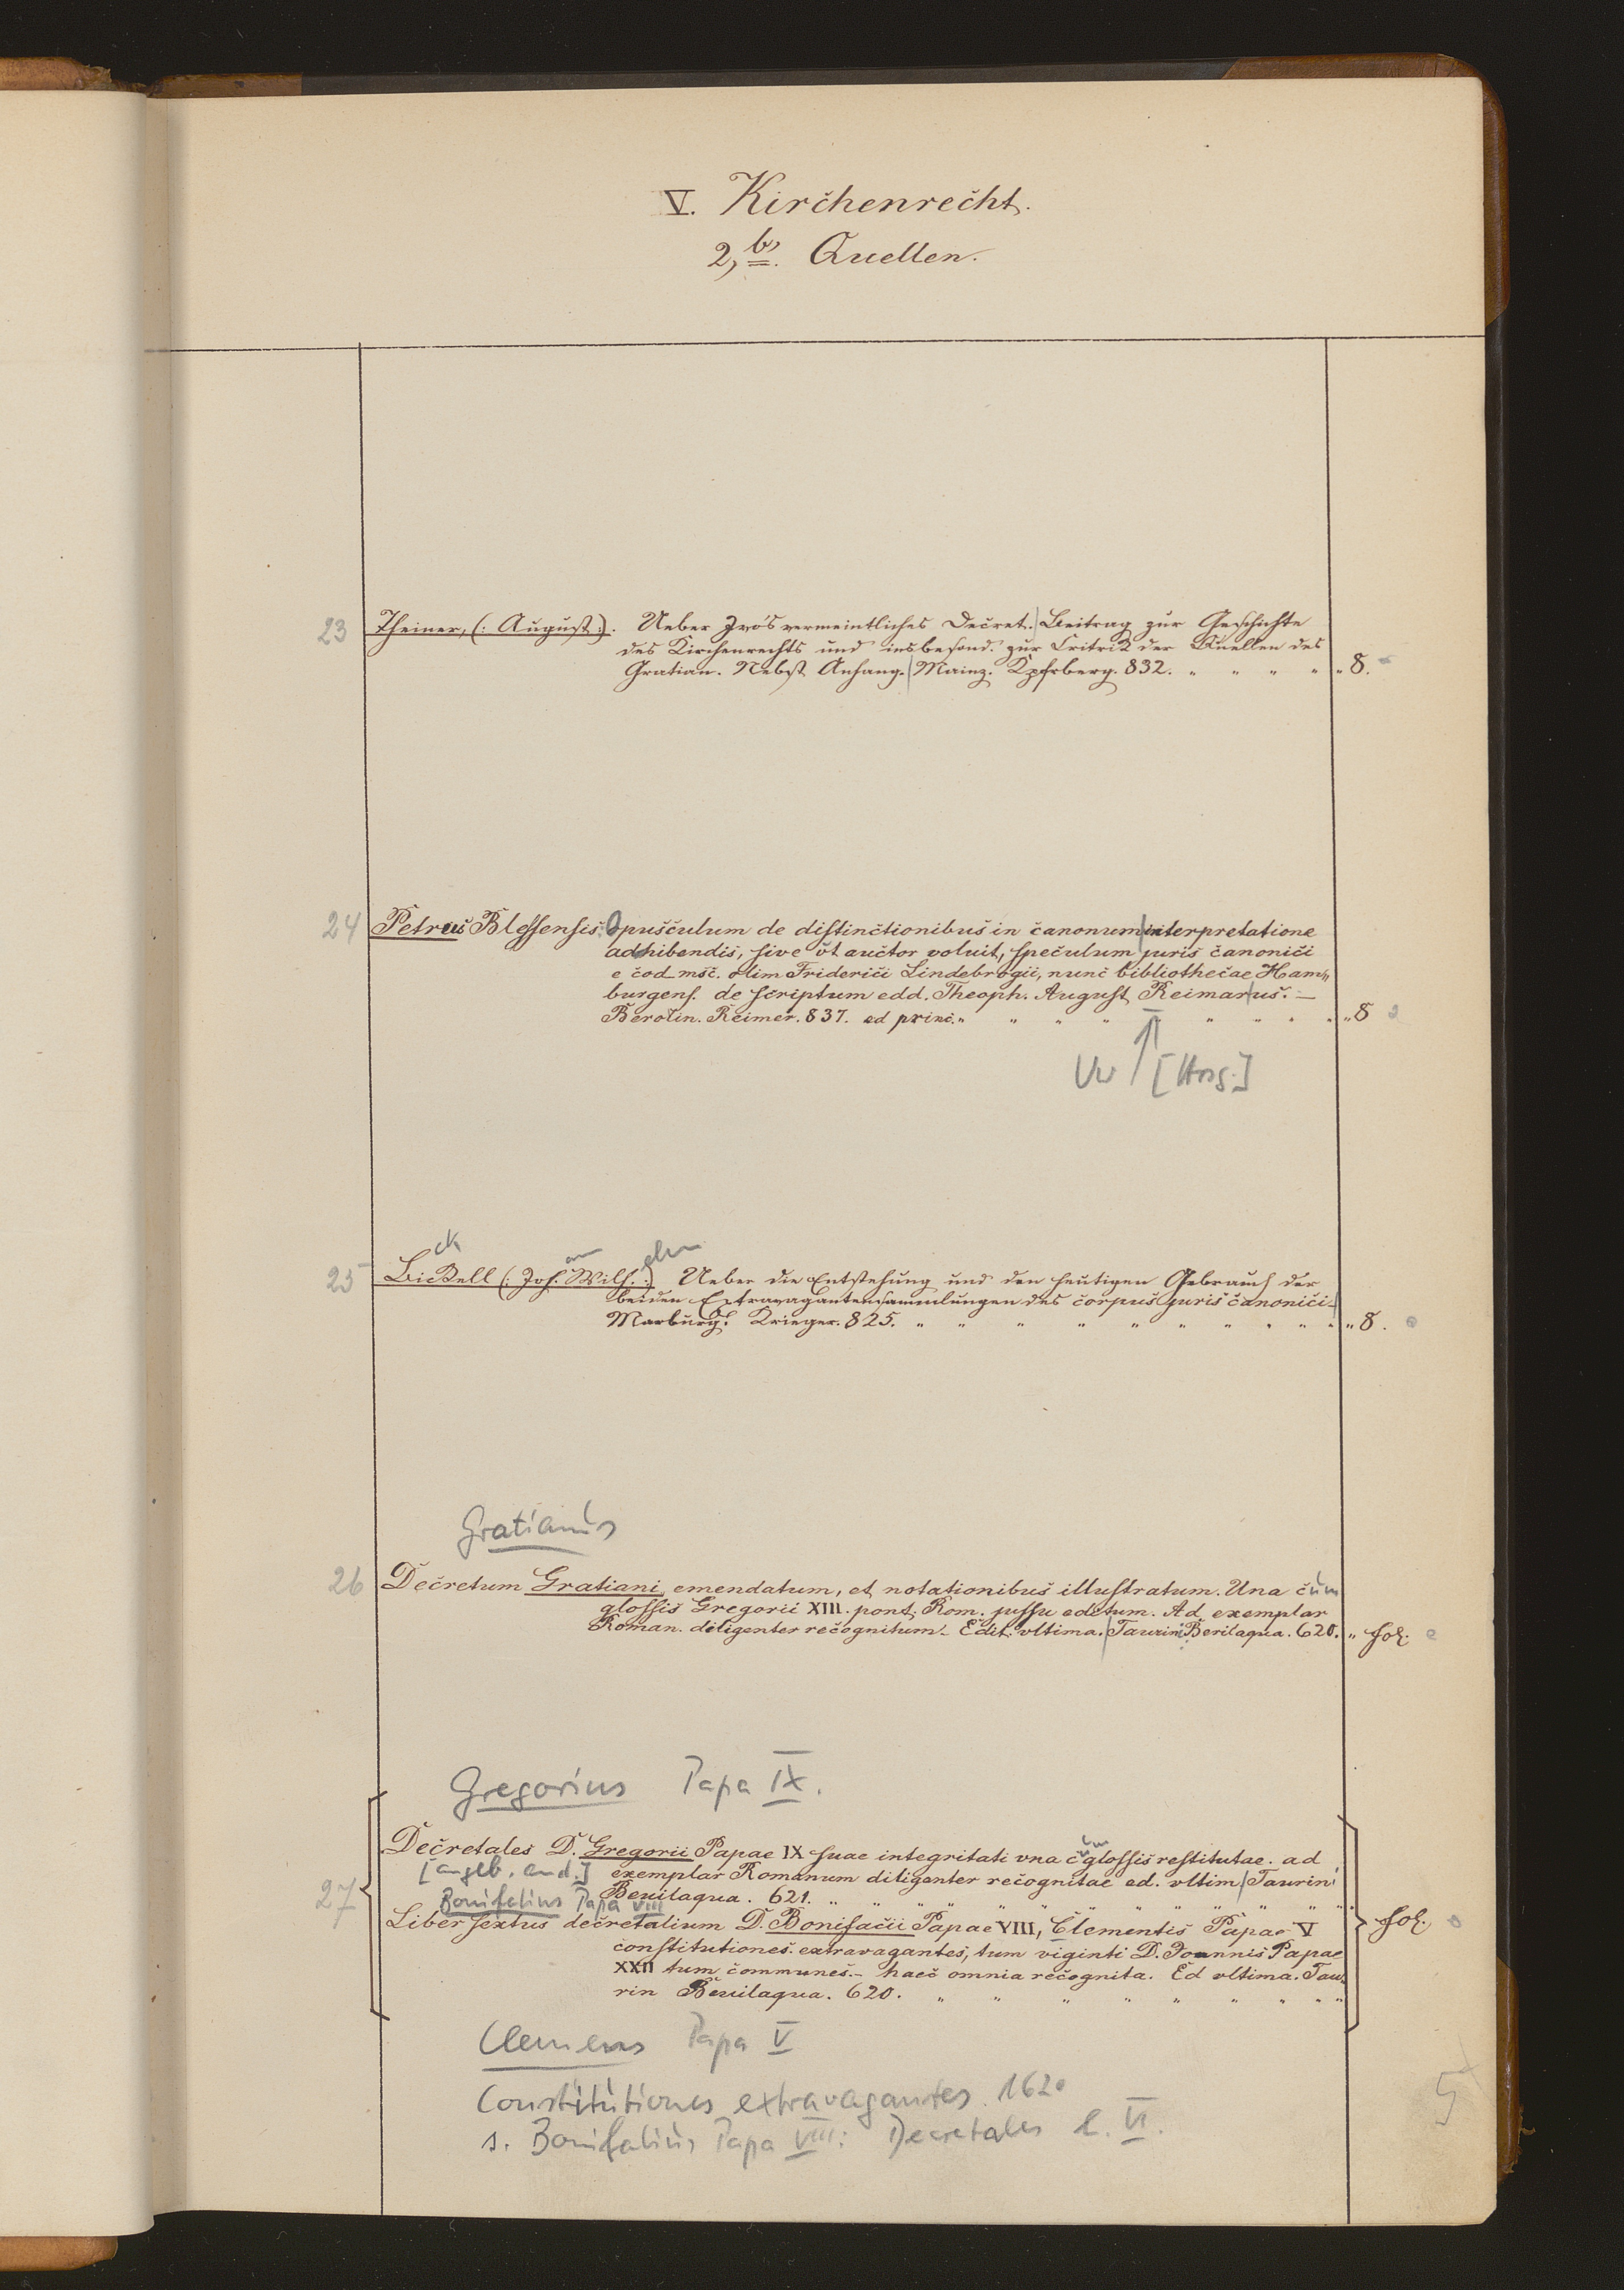 V. Kirchenrecht.
2, b, Quellen.
23 Theiner, (: August :). Ueber Ivo's vermeintliches Decret. | Beitrag zur Geschichte
des Kirchenrechts und insbesond. zur Critik der Quellen des
Gratian. Nebst Anhang. | Mainz. Kpfrberg. 832. " " " " " 8.
24 Petrus Blessensis Opusculum de distinctionibus in canonum interpretatione
adhibendis, sive ut auctor voluit, speculum juris canonici
e cod msc. olim Friderici Lindebrogii, nunc bibliothecae Ham„
burgens. descriptum edd. Theoph. August Reimarus. —
Berolin. Reimer. 837. ed princ. " " " " " " " " " " 8
[Hrsg.]
ck an elm
25 Bickell (: Joh. Wilh. :) Ueber die Entstehung und den heutigen Gebrauch der
beiden Extravagantensammlungen des corpus juris canonici –
Marburg. Krieger. 825. " " " " " " " " " " 8.
Gratianus
26 Decretum Gratiani emendatum, et notationibus illustratum. Una cum
glossis Gregorii XIII. pont. Rom. jussu editum. Ad exemplar
Roman. diligenter recognitum. Edit. vltima. | Taurin. Berilaqua. 620. " fol.
Gregorius Papa IX.
Decretales D. Gregorii Papae IX suae integritati vna c um glossis restitutae. ad
[angeb. and.] exemplar Romanum diligenter recognitae ed. vltim | Taurin
Beuilaqua. 621. " " " " " " " " " "
27 Bonifatius Papa VIII fol.
Liber sextus decretalium D. Bonifacii Papae VIII, Clementis Papae V
constitutiones extravagantes, tum viginti D. Joannis Papae
XXII tum communes. – haec omnia recognita. Ed vltima. Tau„
rin Beuilaqua. 620. " " " " " " " "
Clemens Papa V
Constitutiones extravagantes. 1620
s. Bonifatius Papa VIII: Decretales l. VI.
5